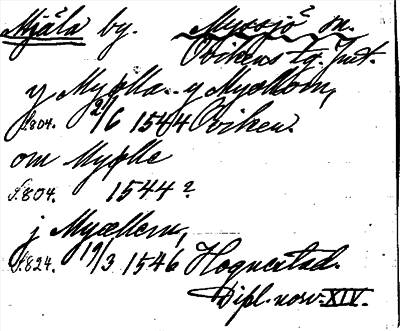 Mjäla by. Myssjö sn.
Ovikens tg. Jmt.
y Myølla. y Myællom,
S.804. 2/6 1544 Oviken.
om Myølle
S.804. 1544?
j Myællem,
S.824. 19/3 1546 Hognestad.
Dipl. norv. XIV.